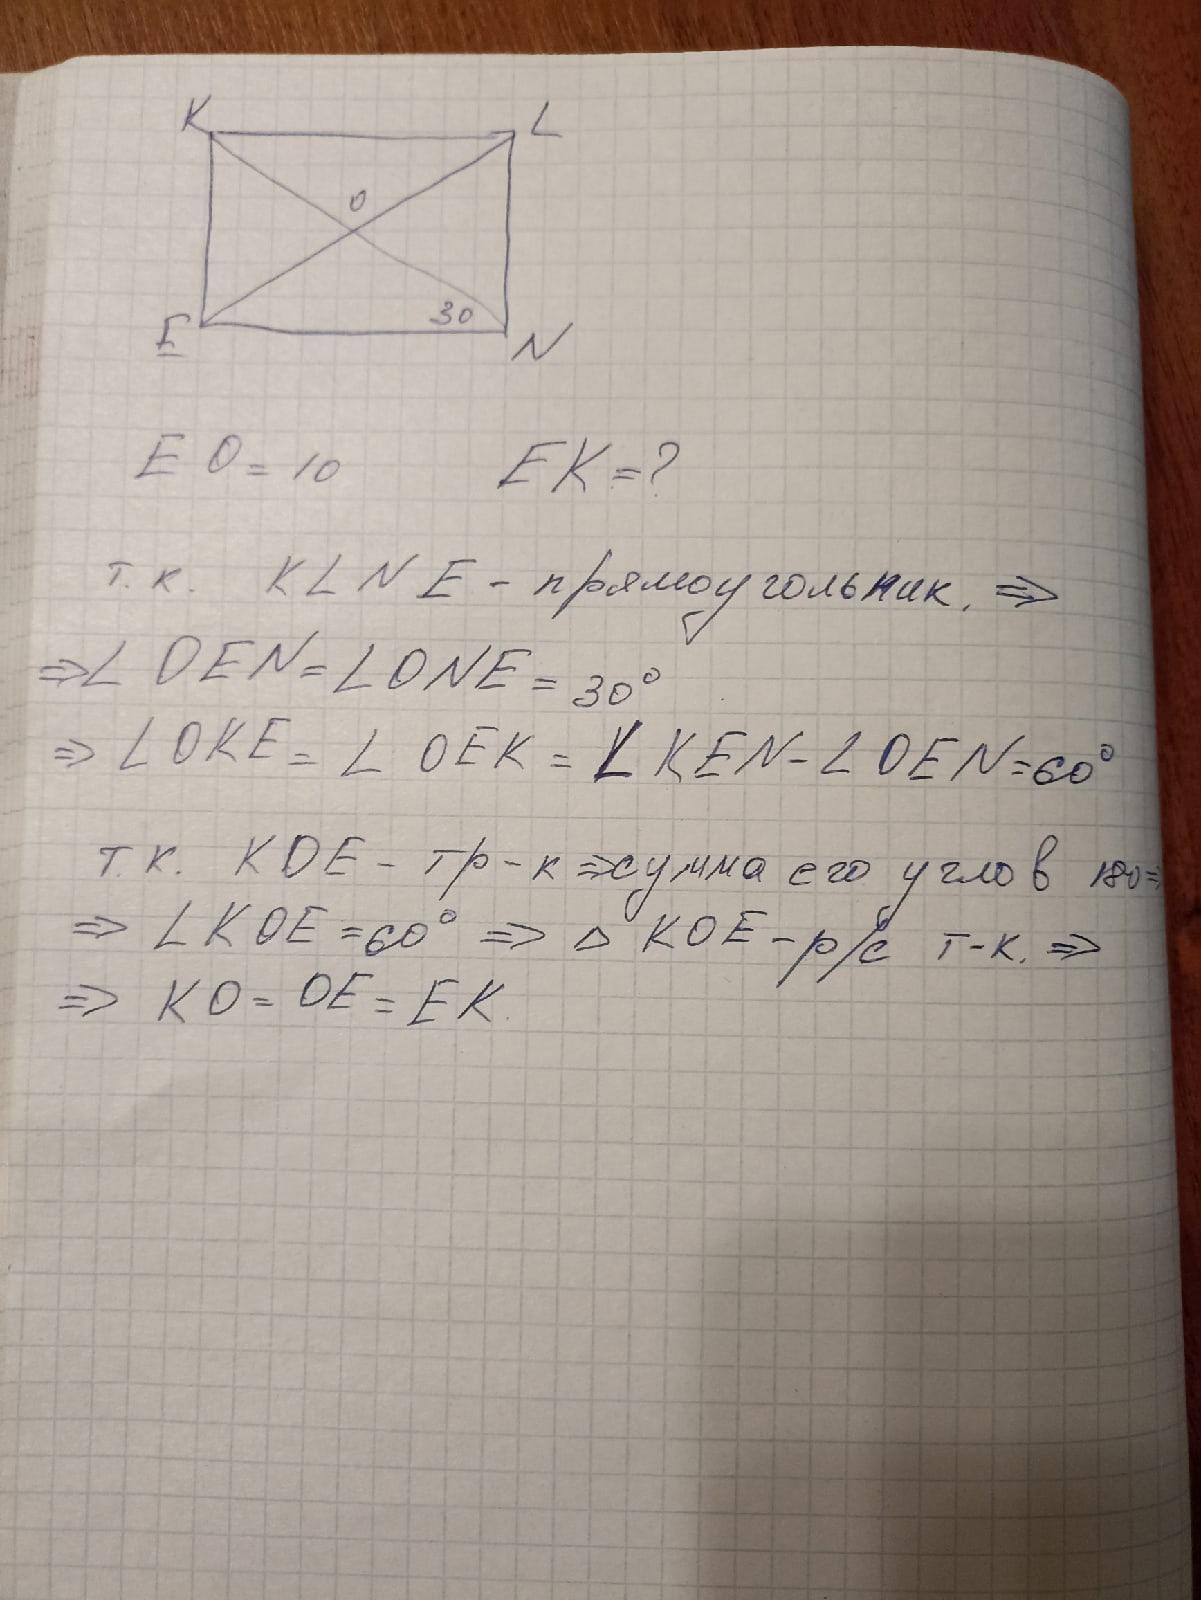 K L
O
30
E N
EO = 10 EK = ?
т.к. KLNE - прямоугольник. ⇒
⇒ ∠OEN = ∠ONE = 30°
⇒ ∠OKE = ∠OEK = ∠KEN - ∠OEN = 60°
т.к. KOE - тр-к ⇒ сумма его углов 180 ⇒
⇒ ∠KOE = 60° ⇒ △ KOE - р/с т-к. ⇒
⇒ KO = OE = EK.